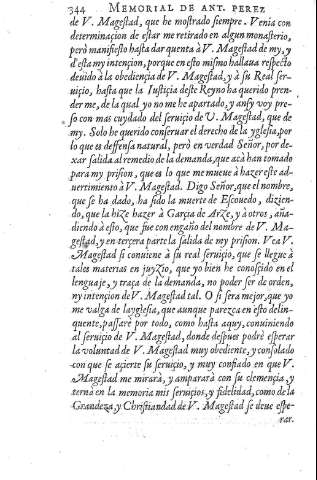 344 MEMORIAL DE ANT. PEREZ
de V. Magestad, que he mostrado siempre. Venia con
determinaçion de estar me retirado en algun monasterio,
però manifiesto hasta dar quenta à V. Magestad de my, y
d'esta my intençion, porque en esto mismo hallaua respecto
deuido à la obediençia de V. Magestad, y à su Real ser-
uiçio, hasta que la Iusticia deste Reyno ha querido pren-
der me, de la qual yo no me he apartado, y ansy voy pre-
so con mas cuydado del seruiçio de V. Magestad, que de
my. Solo he querido conseruar el derecho de la yglesia, por
lo que es deffensa natural, però en verdad Señor, por de-
xar salida al remedio de la demanda, que acà han tomado
para my prision, que es lo que me mueue à hazer este ad-
uertimiento à V. Magestad. Digo Señor, que el nombre,
que se ha dado, ha sido la muerte de Escouedo, dizien-
do, que la hize hazer à Garçia de Arze, y à otros, aña-
diendo à esto, que fue con engaño del nombre de V. Ma-
gestad, y en tercera parte la salida de my prision. Vea V.
Magestad si conuiene à su real seruiçio, que se llegue à
tales materias en juyzio, que yo bien he conosçido en el
lenguaje, y traça de la demanda, no poder ser de orden,
ny intençion de V. Magestad tal. O si sera mejor, que yo
me valga de la yglesia, que aunque parezca en esto delin-
quente, passarè por todo, como hasta aquy, conuiniendo
al seruiçio de V. Magestad, donde despues podrè esperar
la voluntad de V. Magestad muy obediente, y consolado
con que se açierte su seruiçio, y muy confiado en que V.
Magestad me mirarà, y ampararà con su clemençia, y
ternà en la memoria mis seruiçios, y fidelidad, como de la
Grandeza, y Christiandad de V. Magestad se deue espe-
rar.